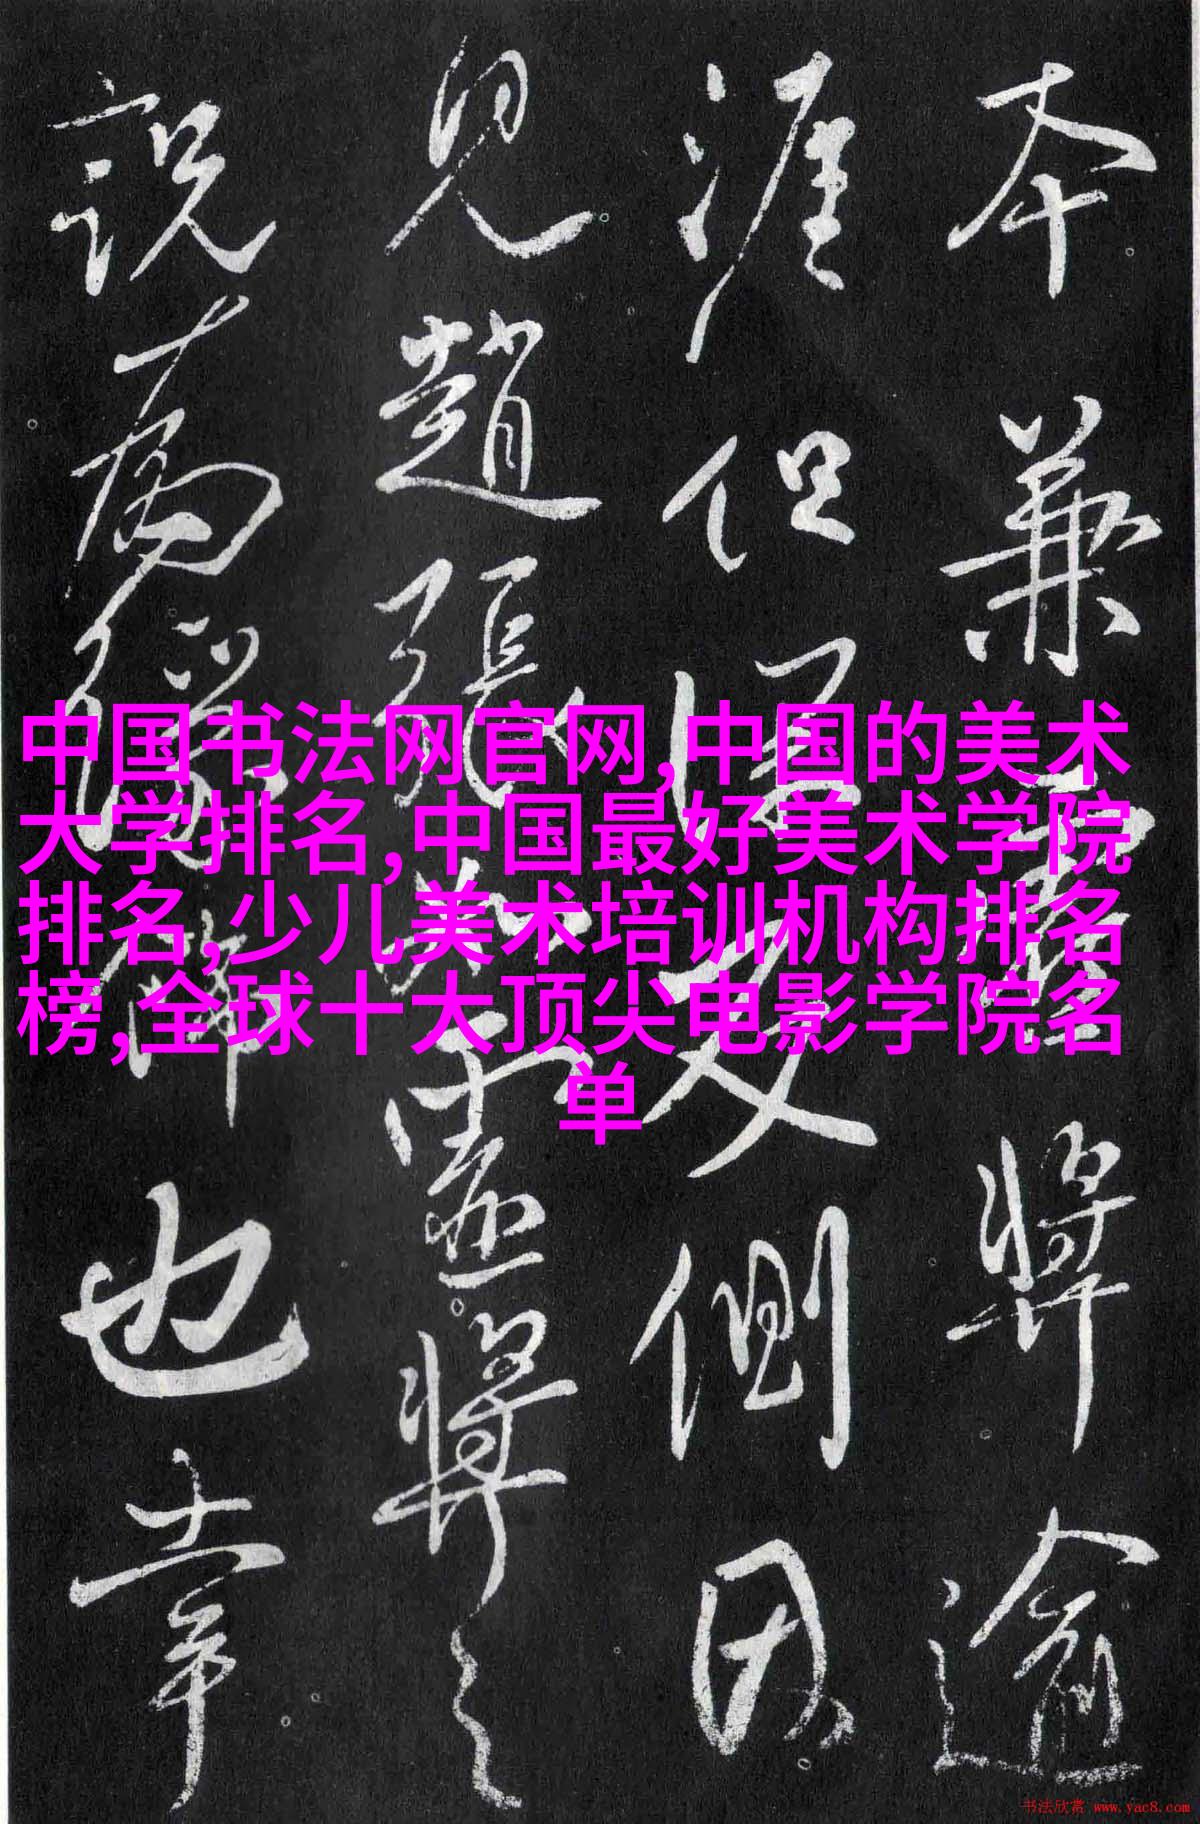 中国书法网官网,中国的美术
大学排名,中国最好美术学院
排名,少儿美术培训机构排名
榜,全球十大顶尖电影学院名
单
本兼將逾
涯但又側因
見趙張虛將之
説為也
书法欣赏 www.yac8.com